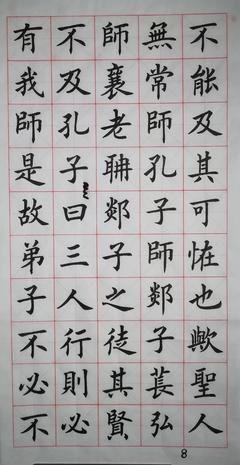 不能及其可恠也歟聖人
無常師孔子師郯子萇弘
師襄老聃郯子之徒其賢
不及孔子〻〻曰三人行則必
有我師是故弟子不必不
8